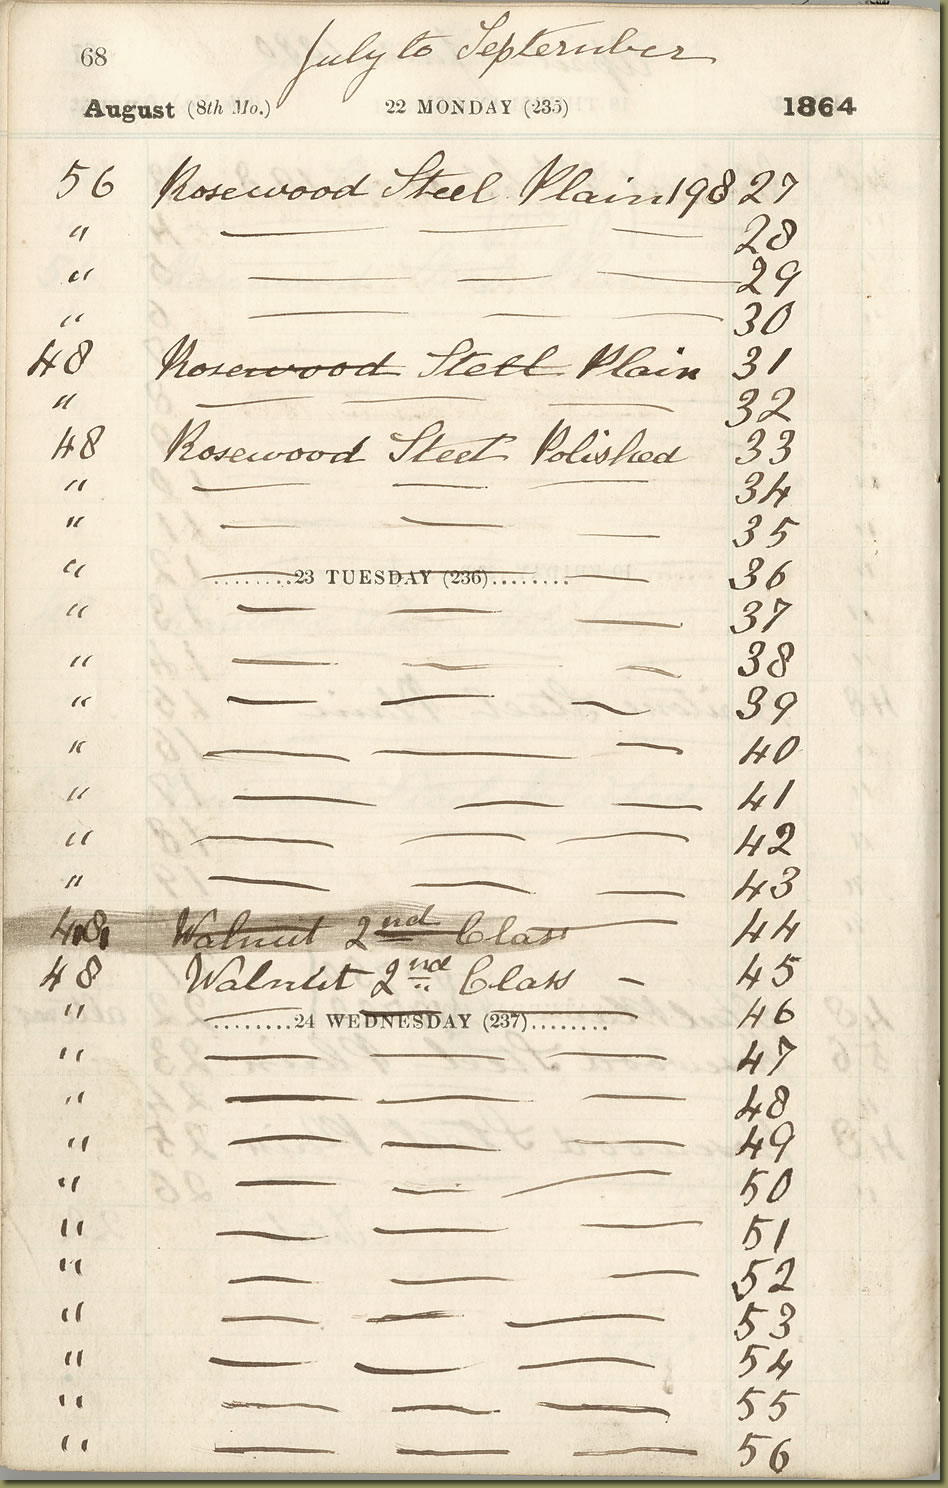 68 July to September
August (8th Mo.) 22 MONDAY (235) 1864
56 Rosewood Steel Plain 198 27
" — — — 28
" — — — 29
" — — — 30
48 Rosewood Steel Plain 31
" — — — 32
48 Rosewood Steel Polished 33
" — — — 34
" — — — 35
" — — — 36
........23 TUESDAY (236)........
" — — — 37
" — — — 38
" — — — 39
" — — — 40
" — — — 41
" — — — 42
" — — — 43
48 Walnut 2nd Class — 44
48 Walnut 2nd Class — 45
" — — — 46
........24 WEDNESDAY (237)........
" — — — 47
" — — — 48
" — — — 49
" — — — 50
" — — — 51
" — — — 52
" — — — 53
" — — — 54
" — — — 55
" — — — 56